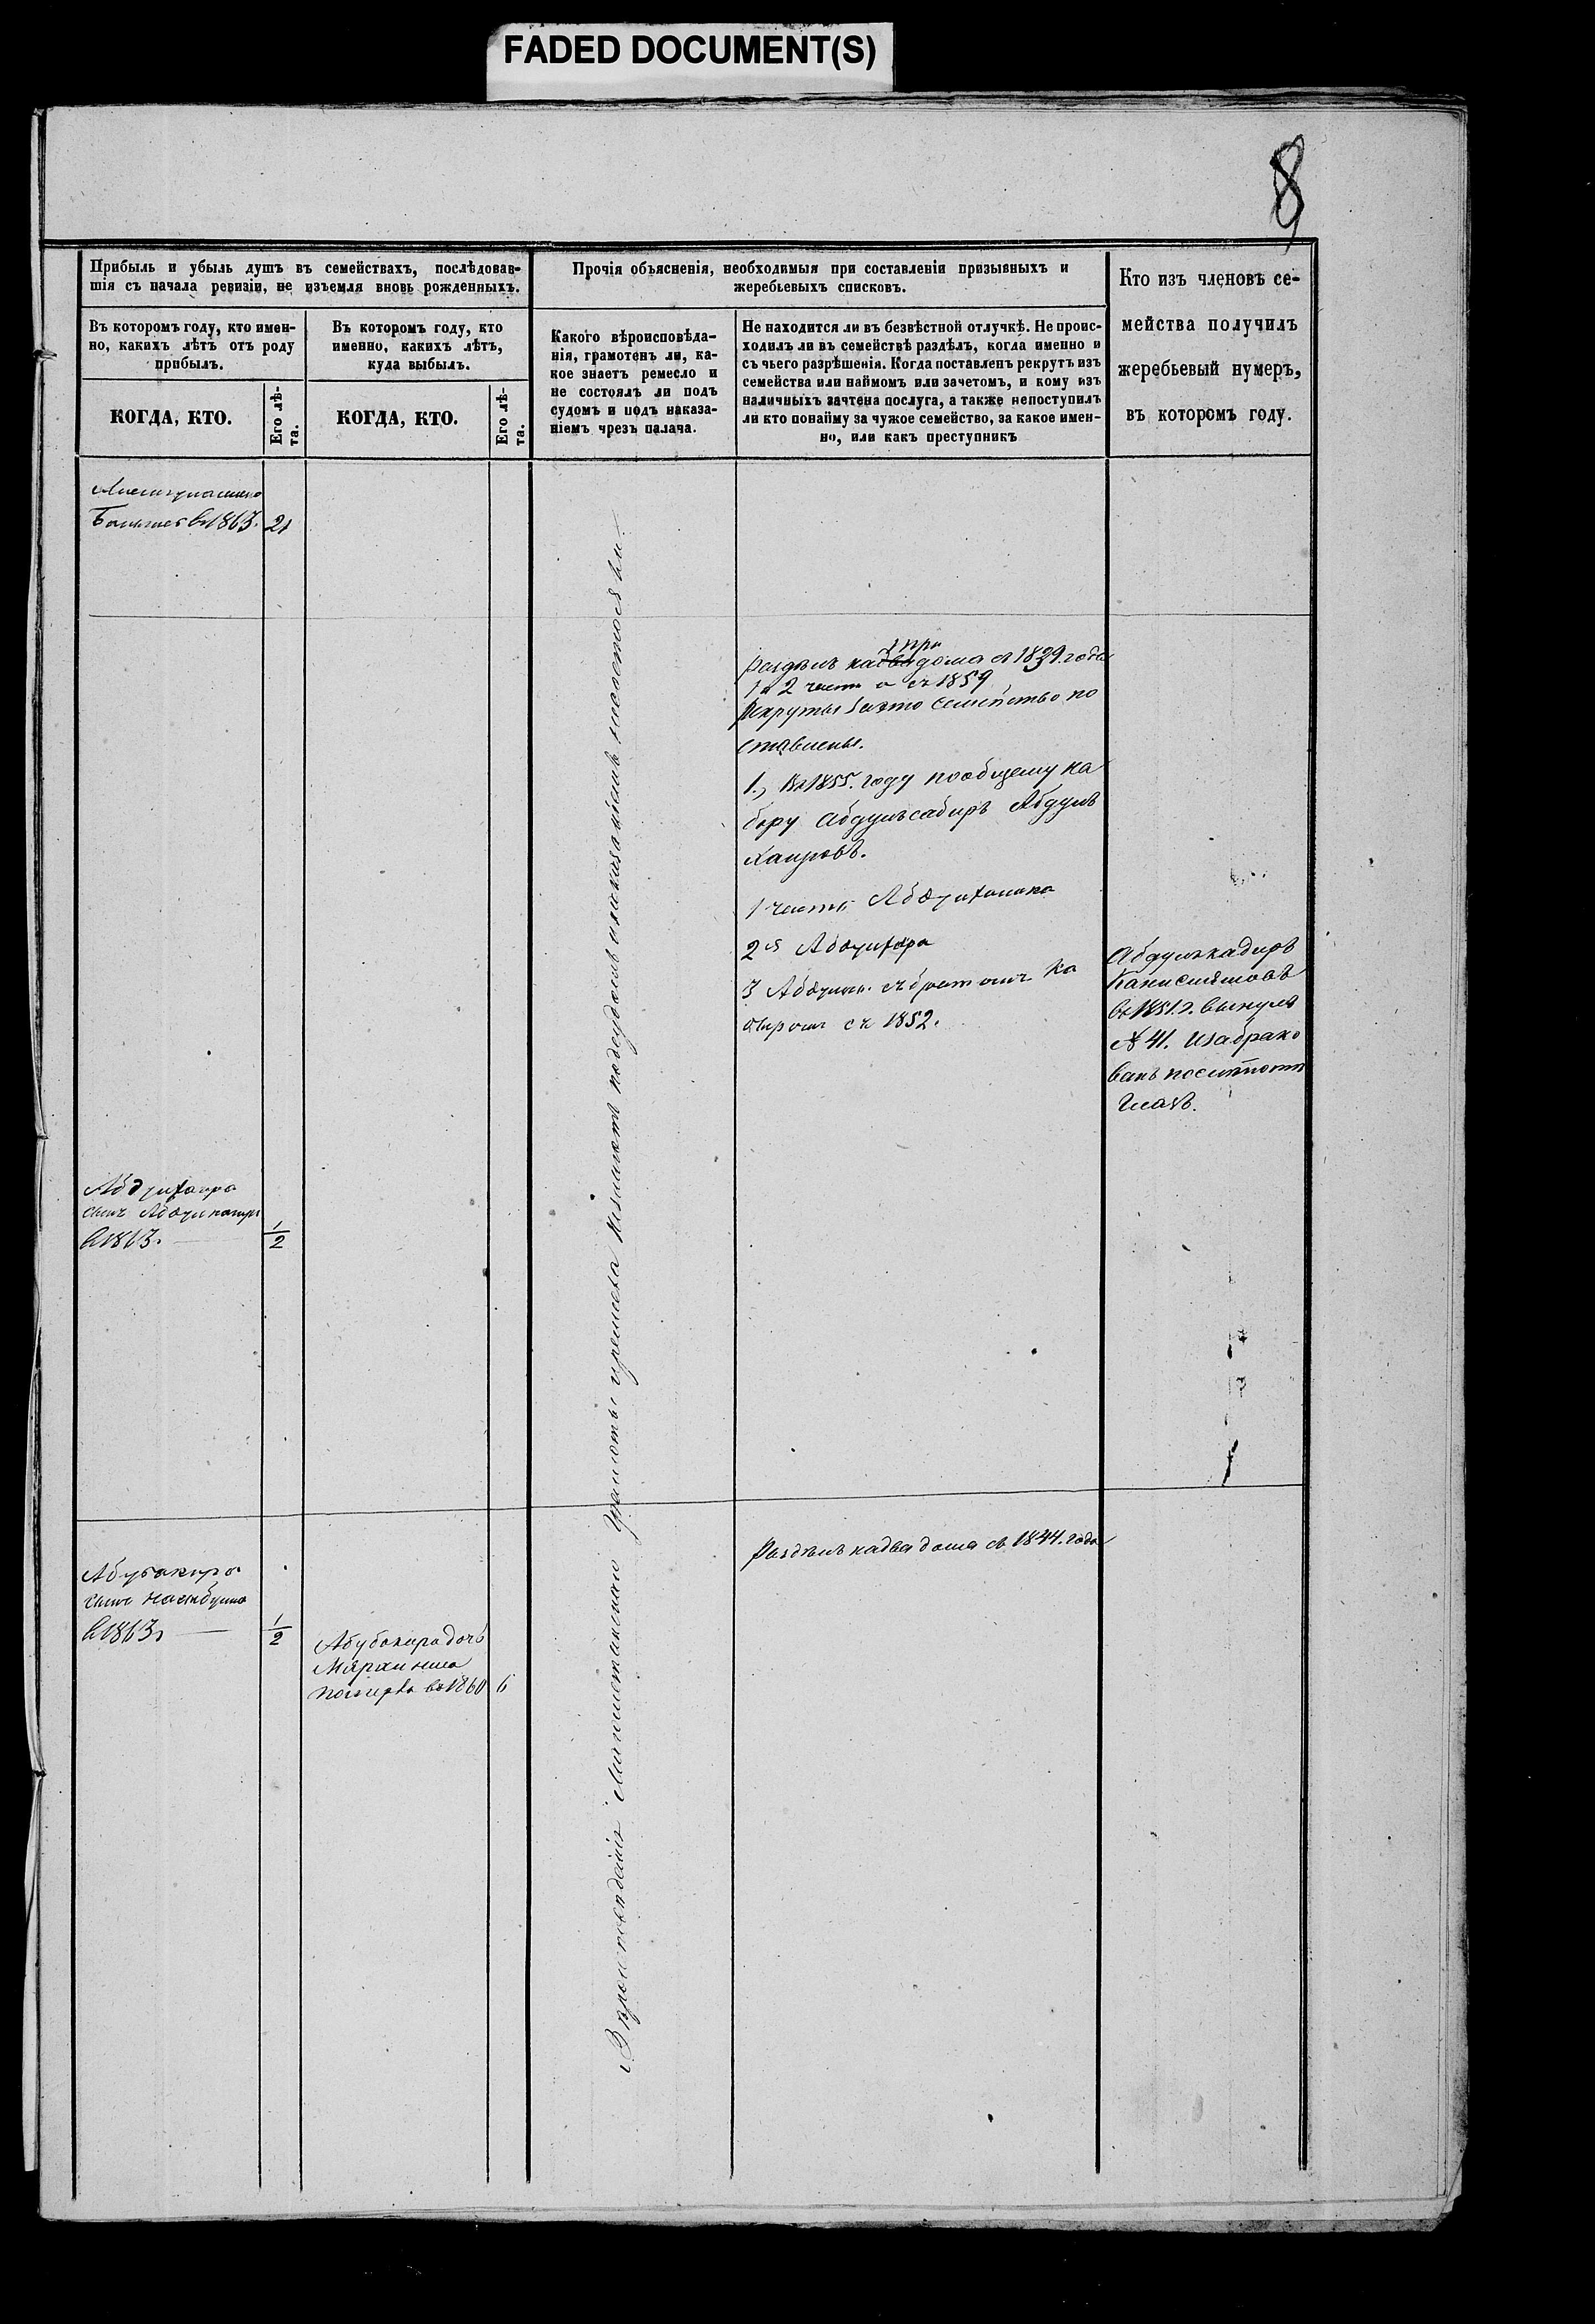 FADED DOCUMENT(S)
8
Прибыль и убыль душъ въ семействахъ, послѣдовав-
шія съ начала ревизіи, не изъемля вновь рожденныхъ.
Прочія объясненія, необходимыя при составленіи призывныхъ и
жеребьевыхъ списковъ.
Кто изъ членовъ се-
мейства получилъ
жеребьевый нумеръ,
въ которомъ году.
Въ которомъ году, кто имен-
но, какихъ лѣтъ отъ роду
прибылъ.
Въ которомъ году, кто
именно, какихъ лѣтъ,
куда выбылъ.
Какого вѣроисповѣда-
нія, грамотенъ ли, ка-
кое знаетъ ремесло и
не состоялъ ли подъ
судомъ и подъ наказа-
ніемъ чрезъ палача.
Не находится ли въ безвѣстной отлучкѣ. Не проис-
ходилъ ли въ семействѣ раздѣлъ, когда именно и
съ чьего разрѣшенія. Когда поставленъ рекрутъ изъ
семейства или наймомъ или зачетомъ, и кому изъ
наличныхъ зачтена послуга, а также непоступилъ
ли кто понайму за чужое семейство, за какое имен-
но, или какъ преступникъ
КОГДА, КТО.
Его лѣ-
та.
КОГДА, КТО.
Его лѣ-
та.
въ 1863. 21
Вѣроисповѣданія Магометанскаго грамоты и ремесла незнаютъ подсудомъ и наказаніемъ несостояли
3 при
раздѣлъ на два дома съ 1839. года
1 и 2 части а съ 1859
Рекруты за это семейство по
ставлены.
1., Въ 1855. году пообщему на
бору Абдулъсабиръ Абдулъ
Каировъ.
1 часть
2 я
3 Абдулъ. съ братомъ Ка
дыромъ съ 1852.
Абдулъкадиръ
въ 1851. г. вынулъ
№ 41. Изабрако
ванъ
глазъ.
Абдулкаира
сынъ
въ 1863. 1/2
Раздѣлъ на два дома съ 1844. года
Абубакира
сынъ
въ 1863. 1/2
Абубакира дочь
померла въ 1860 6